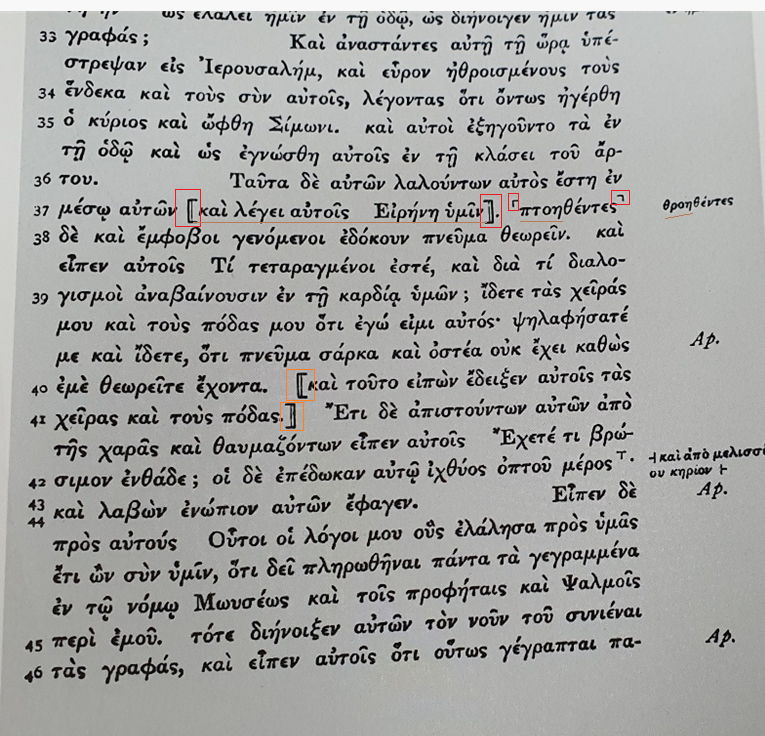 ὡς ἐλάλει ἡμῖν ἐν τῇ ὁδῷ, ὡς διήνοιγεν ἡμῖν τὰς
33 γραφάς; Καὶ ἀναστάντες αὐτῇ τῇ ὥρᾳ ὑπέ-
στρεψαν εἰς Ἰερουσαλήμ, καὶ εὗρον ἠθροισμένους τοὺς
34 ἕνδεκα καὶ τοὺς σὺν αὐτοῖς, λέγοντας ὅτι ὄντως ἠγέρθη
35 ὁ κύριος καὶ ὤφθη Σίμωνι. καὶ αὐτοὶ ἐξηγοῦντο τὰ ἐν
τῇ ὁδῷ καὶ ὡς ἐγνώσθη αὐτοῖς ἐν τῇ κλάσει τοῦ ἄρ-
36 του. Ταῦτα δὲ αὐτῶν λαλούντων αὐτὸς ἔστη ἐν
37 μέσῳ αὐτῶν ⟦καὶ λέγει αὐτοῖς Εἰρήνη ὑμῖν⟧. ⌜πτοηθέντες⌝ θροηθέντες
38 δὲ καὶ ἔμφοβοι γενόμενοι ἐδόκουν πνεῦμα θεωρεῖν. καὶ
εἶπεν αὐτοῖς Τί τεταραγμένοι ἐστέ, καὶ διὰ τί διαλο-
39 γισμοὶ ἀναβαίνουσιν ἐν τῇ καρδίᾳ ὑμῶν; ἴδετε τὰς χεῖράς
μου καὶ τοὺς πόδας μου ὅτι ἐγώ εἰμι αὐτός· ψηλαφήσατέ
με καὶ ἴδετε, ὅτι πνεῦμα σάρκα καὶ ὀστέα οὐκ ἔχει καθὼς Ap.
40 ἐμὲ θεωρεῖτε ἔχοντα. ⟦καὶ τοῦτο εἰπὼν ἔδειξεν αὐτοῖς τὰς
41 χεῖρας καὶ τοὺς πόδας.⟧ Ἔτι δὲ ἀπιστούντων αὐτῶν ἀπὸ
τῆς χαρᾶς καὶ θαυμαζόντων εἶπεν αὐτοῖς Ἔχετέ τι βρώ-
42 σιμον ἐνθάδε; οἱ δὲ ἐπέδωκαν αὐτῷ ἰχθύος ὀπτοῦ μέρος⊤. ⊣καὶ ἀπὸ μελισσί
ου κηρίον⊢
43 καὶ λαβὼν ἐνώπιον αὐτῶν ἔφαγεν. Εἶπεν δὲ Ap.
44 πρὸς αὐτούς Οὗτοι οἱ λόγοι μου οὓς ἐλάλησα πρὸς ὑμᾶς
ἔτι ὢν σὺν ὑμῖν, ὅτι δεῖ πληρωθῆναι πάντα τὰ γεγραμμένα
ἐν τῷ νόμῳ Μωυσέως καὶ τοῖς προφήταις καὶ Ψαλμοῖς
45 περὶ ἐμοῦ. τότε διήνοιξεν αὐτῶν τὸν νοῦν τοῦ συνιέναι
46 τὰς γραφάς, καὶ εἶπεν αὐτοῖς ὅτι οὕτως γέγραπται πα- Ap.